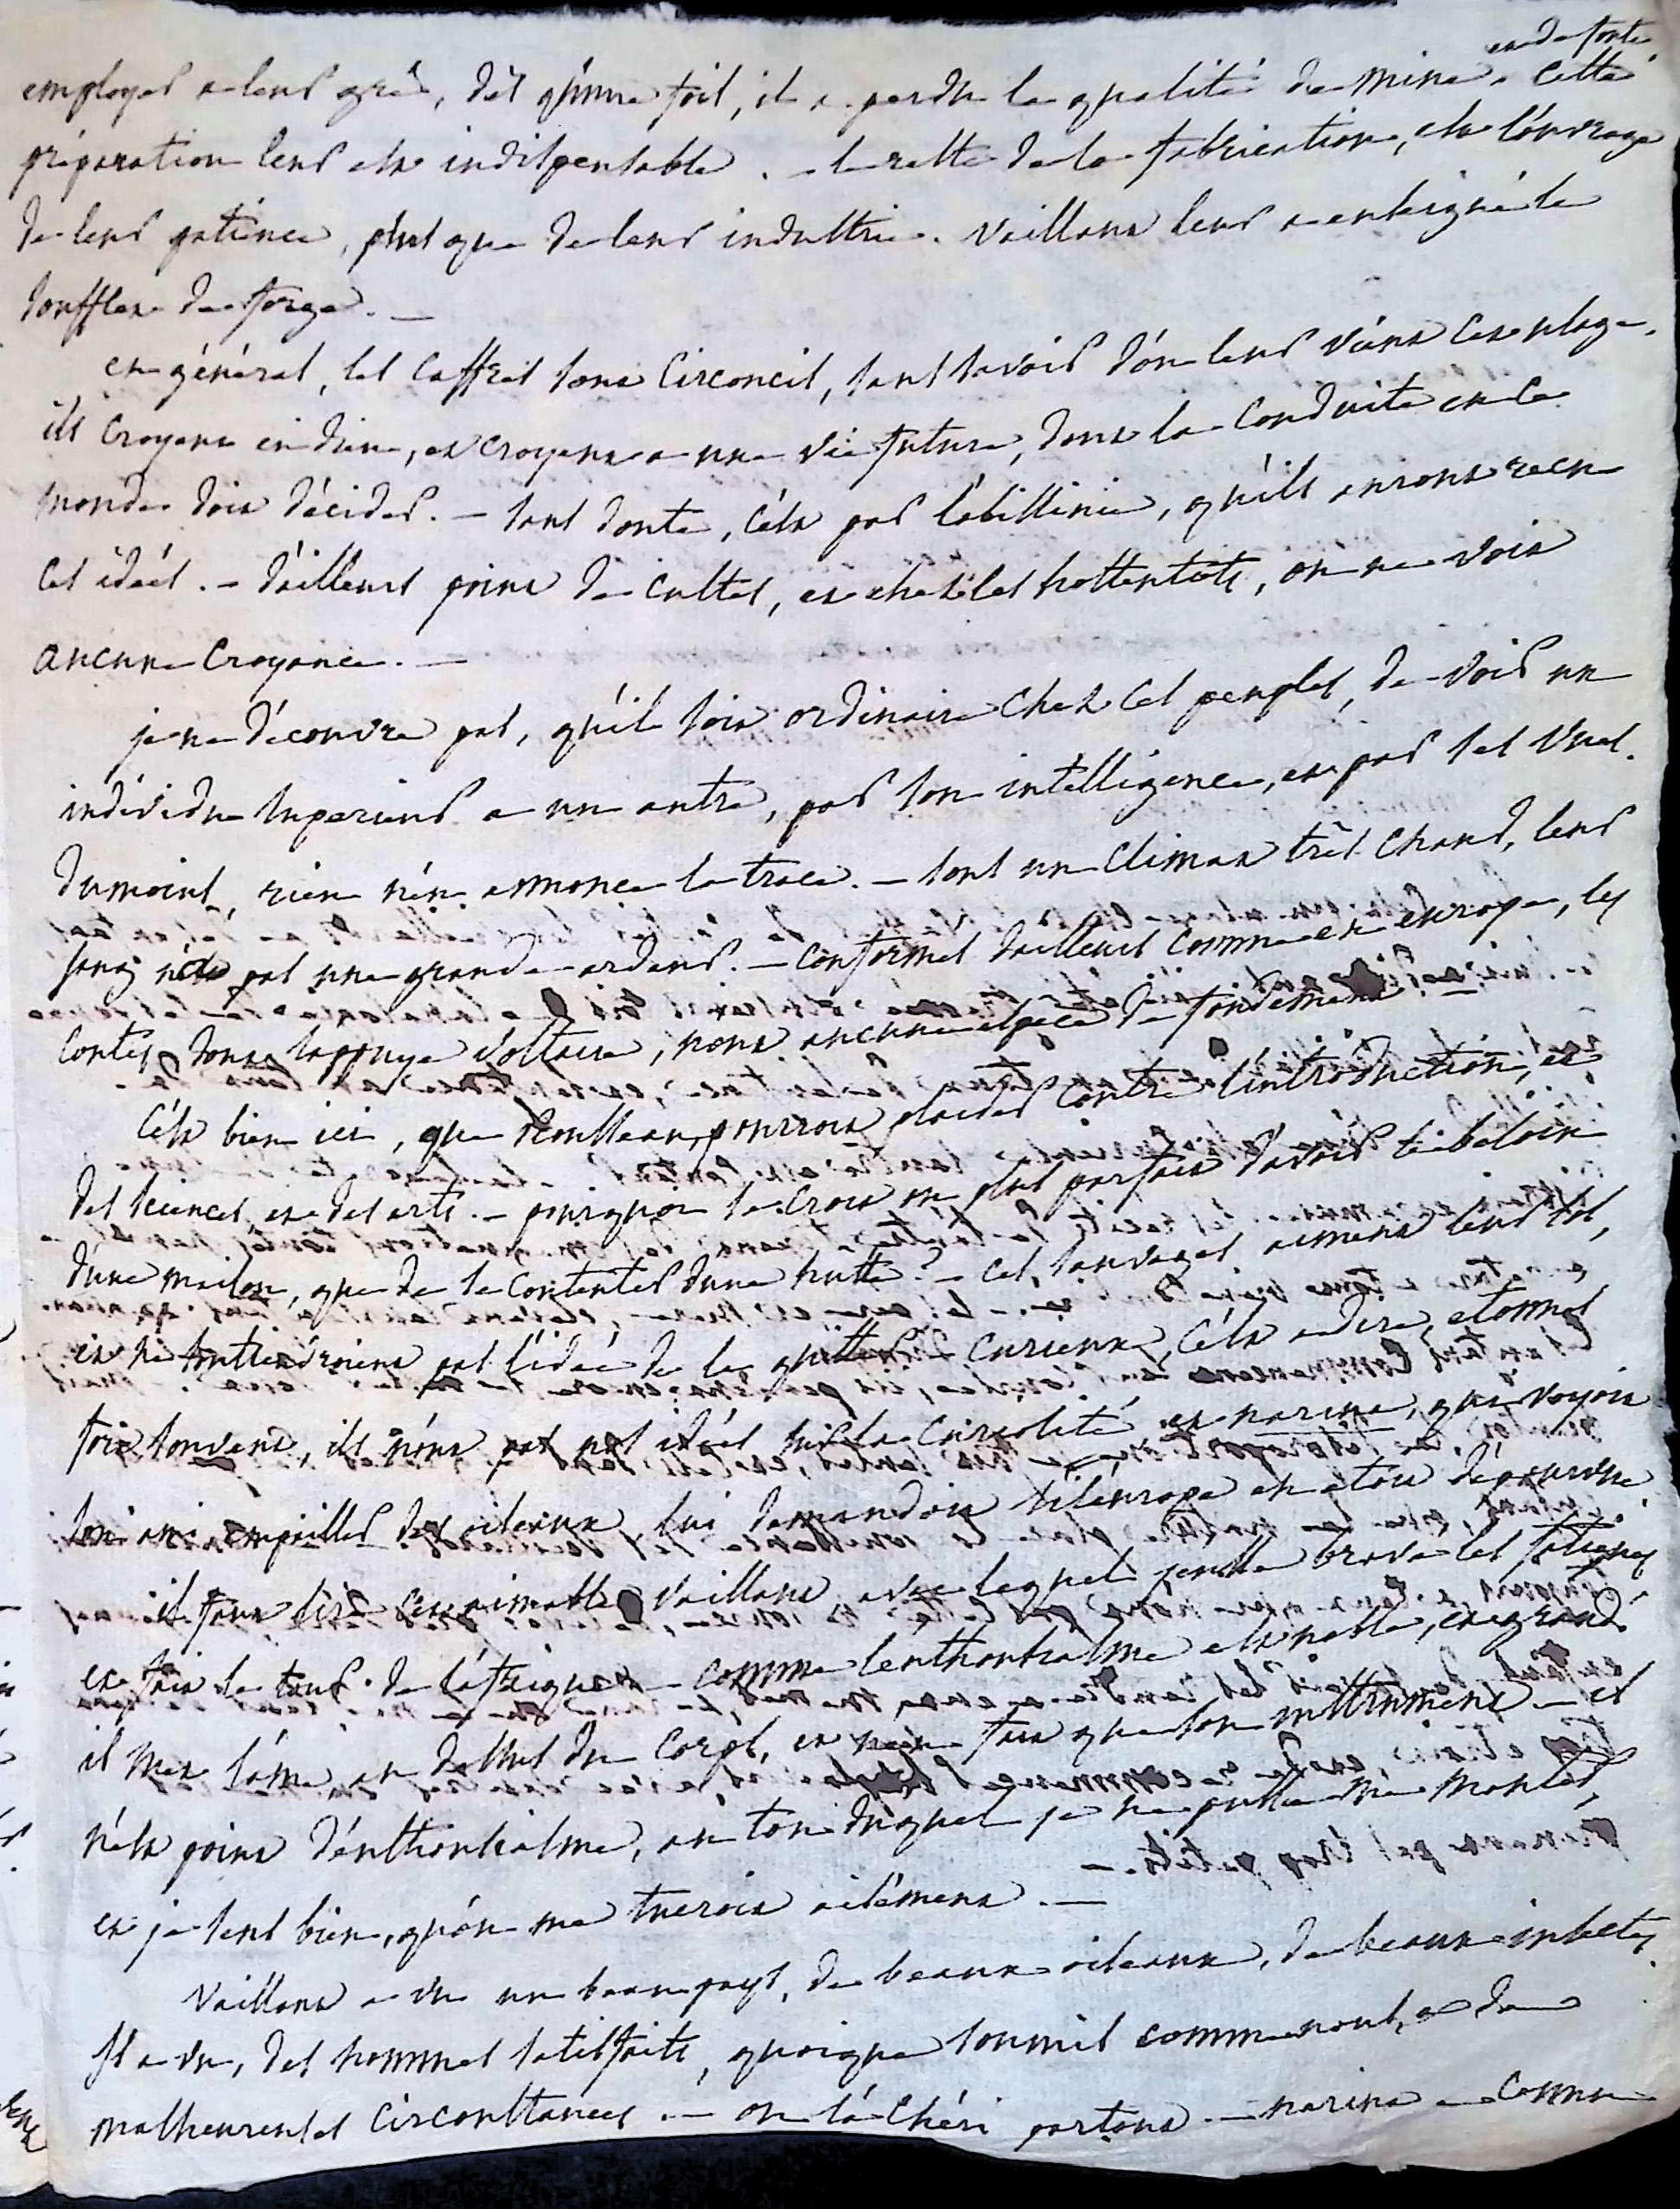 et de fonte
employer a leur gré, dès qu'une fois, il a perdu la qualité de mine. Cette
préparation leur est indispensable. — le reste de la fabrication, est l'ouvrage
de leur patience, plus que de leur industrie. Vaillant leur a enseigné le
soufflet de forge. —
en général, les Caffres sont Circoncis, sans savoir d'ou leur vient cet usage.
ils croyent en dieu, et croyent a une vie future, dont la Conduite en ce
monde doit décider. — sans doute, c'est par l'abissinie, qu'ils auront recu
ces idées. — d'ailleurs point de cultes, et chez les hottentots, on ne voit
aucune Croyance. —
je ne découvre pas, qu'il soit ordinaire chez ces peuples, de voir un
individu superieur a un autre, par son intelligence, et par ses vues.
du moins, rien n'en annonce la trace. — sous un climat très chaud, leur
sang n'a pas une grande ardeur. — conformés d'ailleurs comme en europe, les
contes dont s'appuye Voltaire, n'ont aucune espece de fondement. —
C'est bien ici, que Rousseau pourroit plaider contre l'introduction, et
des sciences, et des arts. — pourquoi se croit on plus parfait d'avoir besoin
d'une maison, que de se contenter d'une hutte? — Ces sauvages aiment leur sol,
et ne soutiendroient pas l'idée de le quitter. Curieux, c'est a dire, etonnés
fort souvent, ils n'ont pas nos idées sur la Curiosité, et narina, qui voyoit
son ami, empailler des oiseaux, lui demandoit si l'europe en etoit dépourvue
il faut lire cet aimable Vaillant avec lequel, jeusse bravé les fatigues
et fait le tour de l'afrique — comme l'enthousiasme est noble, et grand.
il met l'ame, au dessus du corps, et n'en fait que son instrument — il
n'est point d'enthousiasme, au ton duquel je ne pusse me monter,
et je sens bien, qu'on me tueroit aisément. —
Vaillant a vu un beau pays, de beaux oiseaux, de beaux insectes
Il a vu, des hommes satisfaits, quoique soumis comme nous, a de
malheureuses circonstances. — on l'a chéri partout. — narina a connu